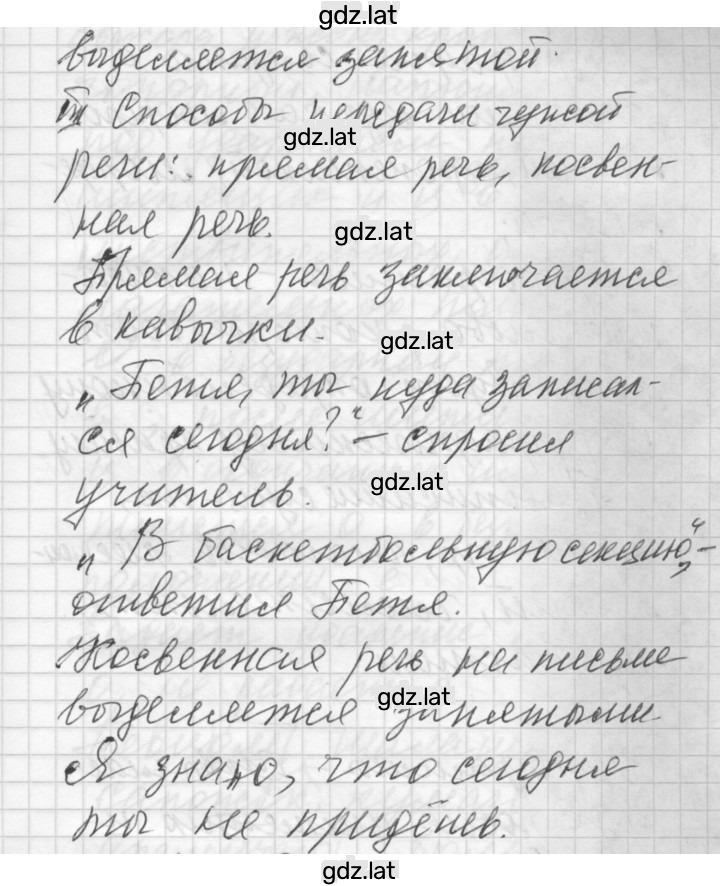 gdz.lat
выделяется запятой.
III Способы передачи чужой
gdz.lat
речи: прямая речь, косвен-
ная речь.
gdz.lat
Прямая речь заключается
в кавычки.
gdz.lat
„Петя, ты куда записал-
ся сегодня?“ – спросил
gdz.lat
учитель.
„В баскетбольную секцию“, –
ответил Петя.
Косвенная речь на письме
gdz.lat
выделяется запятыми.
Я знаю, что сегодня
ты не придёшь.
gdz.lat